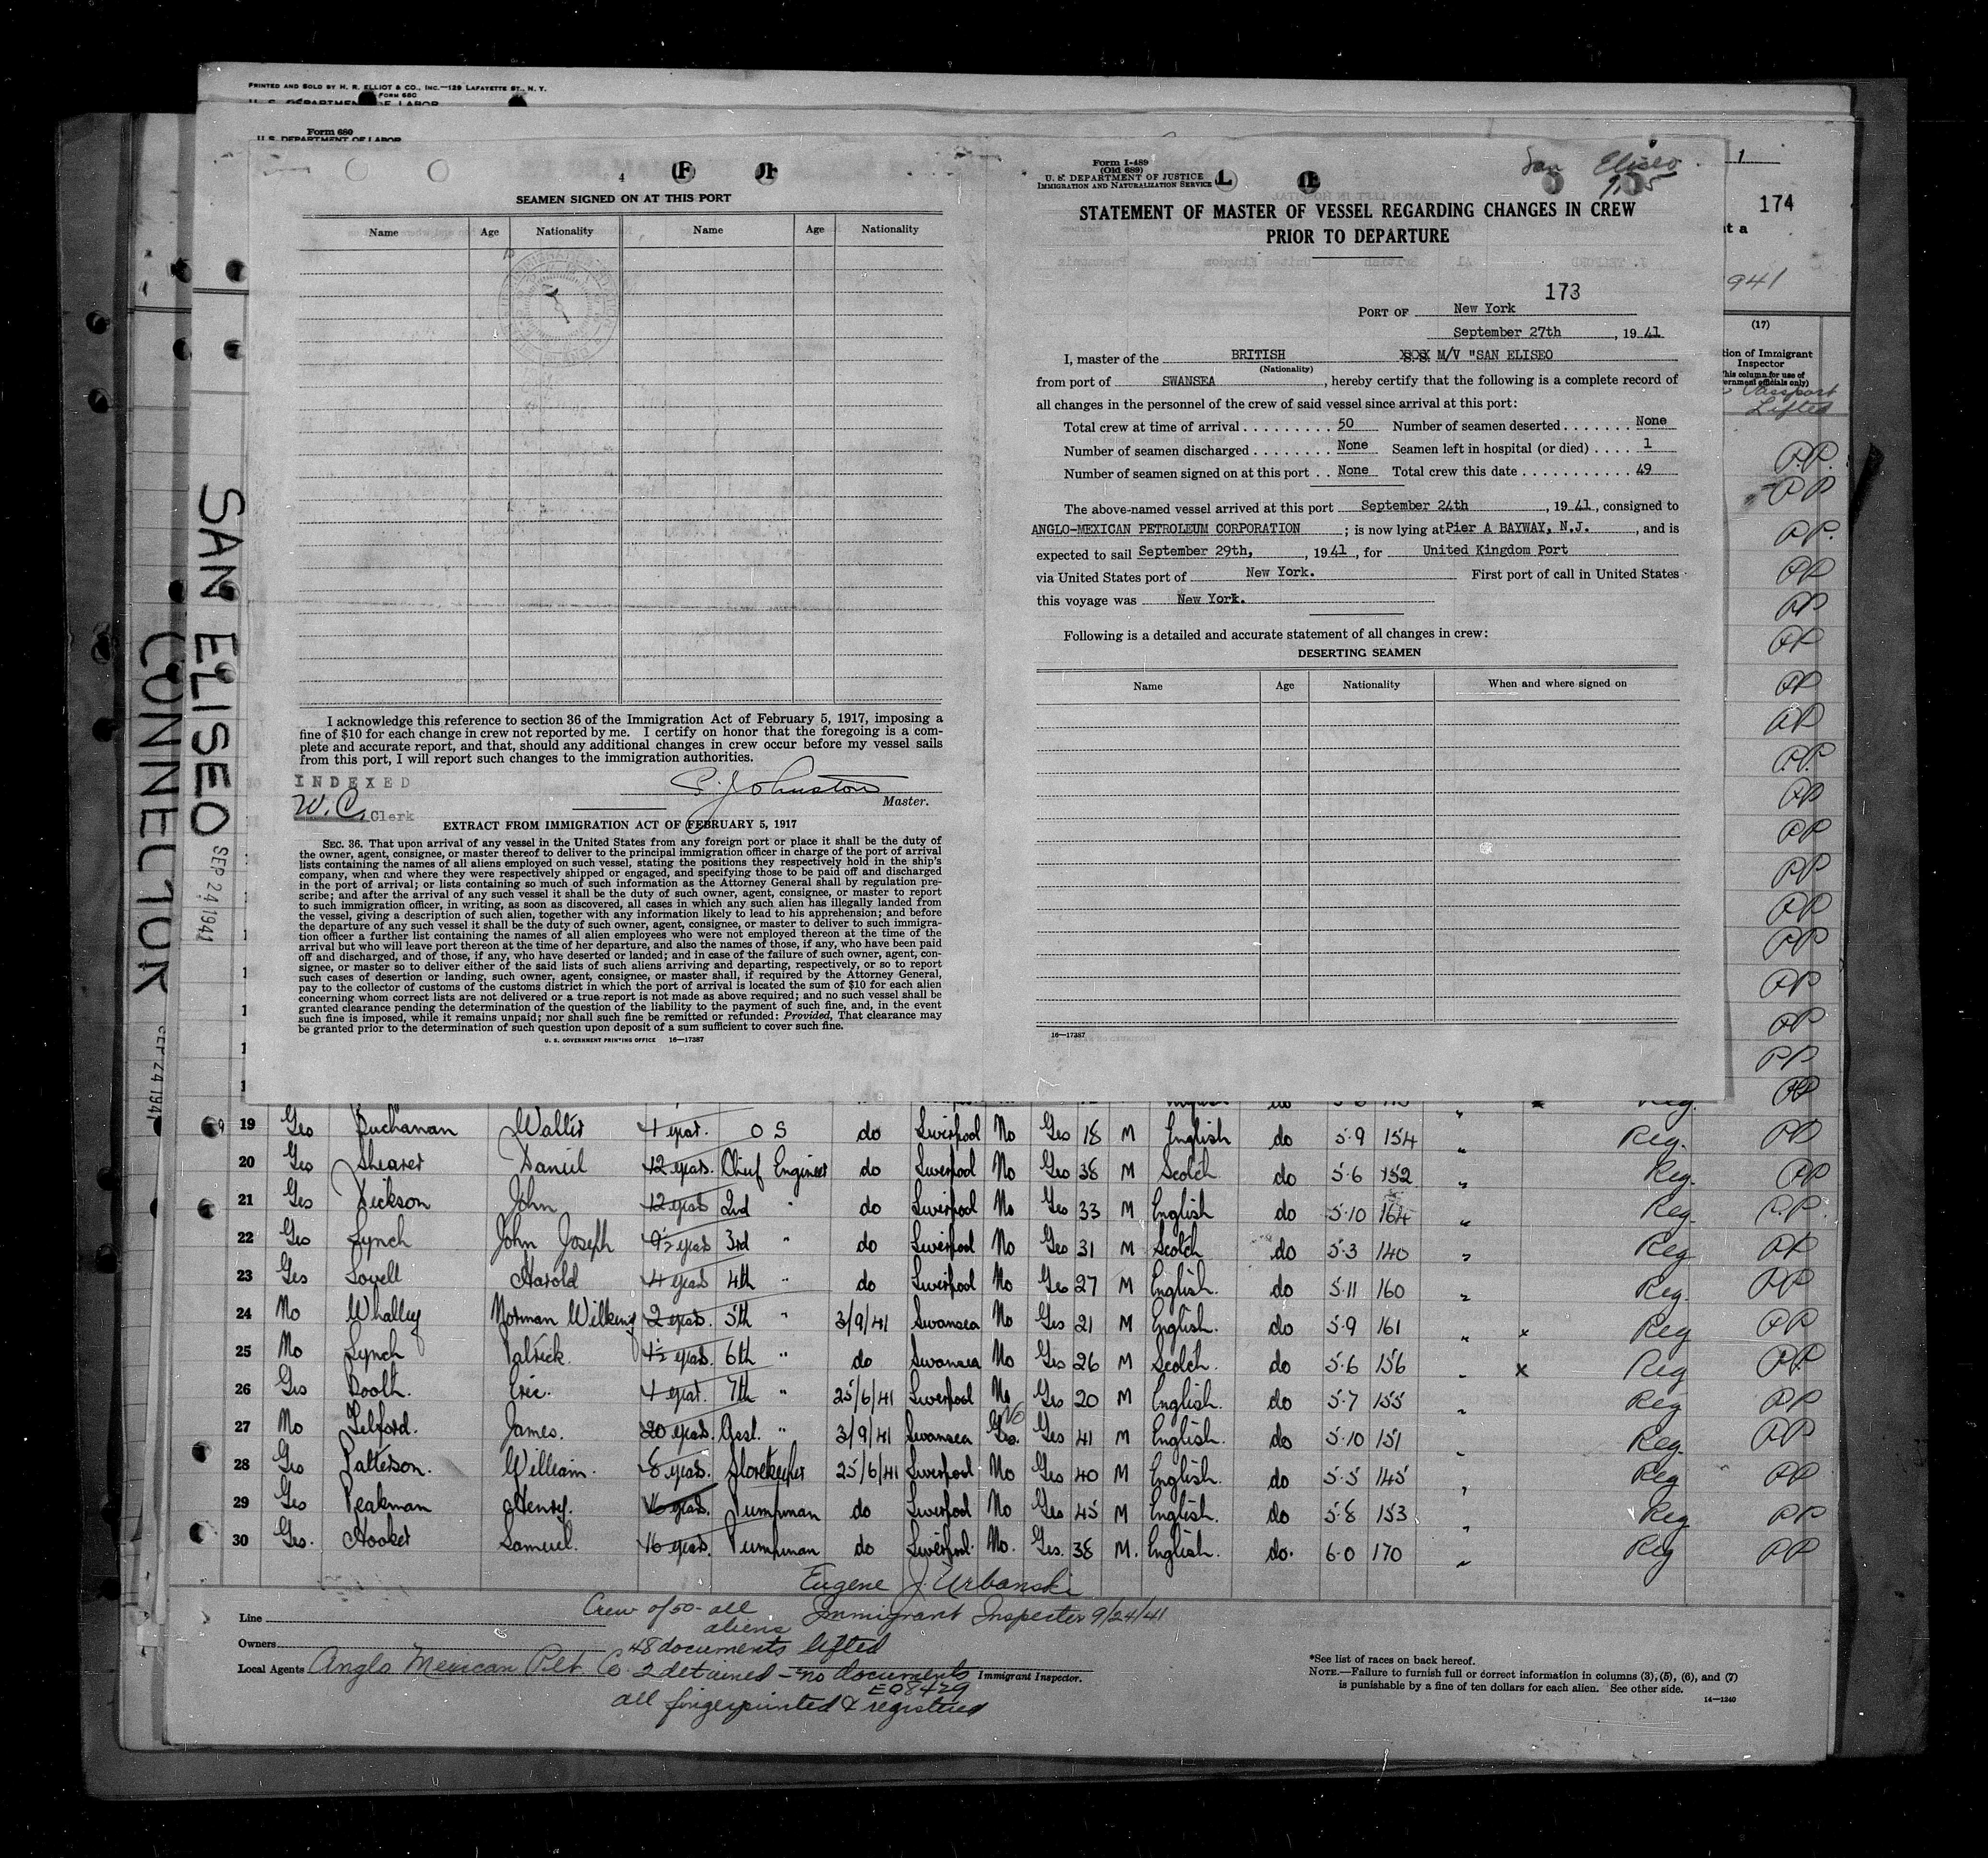 PRINTED AND SOLD BY H. R. ELLIOT & CO., INC.—129 LAFAYETTE ST., N. Y.
FORM 680
U. S. DEPARTMENT OF LABOR
Form 680
U. S. DEPARTMENT OF LABOR
4
SEAMEN SIGNED ON AT THIS PORT
Name Age Nationality Name Age Nationality
I acknowledge this reference to section 36 of the Immigration Act of February 5, 1917, imposing a
fine of $10 for each change in crew not reported by me. I certify on honor that the foregoing is a com-
plete and accurate report, and that, should any additional changes in crew occur before my vessel sails
from this port, I will report such changes to the immigration authorities.
INDEXED
W. C. Clerk
Johnston
Master.
EXTRACT FROM IMMIGRATION ACT OF FEBRUARY 5, 1917
SEC. 36. That upon arrival of any vessel in the United States from any foreign port or place it shall be the duty of
the owner, agent, consignee, or master thereof to deliver to the principal immigration officer in charge of the port of arrival
lists containing the names of all aliens employed on such vessel, stating the positions they respectively hold in the ship's
company, when and where they were respectively shipped or engaged, and specifying those to be paid off and discharged
in the port of arrival; or lists containing so much of such information as the Attorney General shall by regulation pre-
scribe; and after the arrival of any such vessel it shall be the duty of such owner, agent, consignee, or master to report
to such immigration officer, in writing, as soon as discovered, all cases in which any such alien has illegally landed from
the vessel, giving a description of such alien, together with any information likely to lead to his apprehension; and before
the departure of any such vessel it shall be the duty of such owner, agent, consignee, or master to deliver to such immigra-
tion officer a further list containing the names of all alien employees who were not employed thereon at the time of the
arrival but who will leave port thereon at the time of her departure, and also the names of those, if any, who have been paid
off and discharged, and of those, if any, who have deserted or landed; and in case of the failure of such owner, agent, con-
signee, or master so to deliver either of the said lists of such aliens arriving and departing, respectively, or so to report
such cases of desertion or landing, such owner, agent, consignee, or master shall, if required by the Attorney General,
pay to the collector of customs of the customs district in which the port of arrival is located the sum of $10 for each alien
concerning whom correct lists are not delivered or a true report is not made as above required; and no such vessel shall be
granted clearance pending the determination of the question of the liability to the payment of such fine, and, in the event
such fine is imposed, while it remains unpaid; nor shall such fine be remitted or refunded: Provided, That clearance may
be granted prior to the determination of such question upon deposit of a sum sufficient to cover such fine.
U. S. GOVERNMENT PRINTING OFFICE 16—17387
Form I-489
(Old 689)
U. S. DEPARTMENT OF JUSTICE
IMMIGRATION AND NATURALIZATION SERVICE
San Eliseo
STATEMENT OF MASTER OF VESSEL REGARDING CHANGES IN CREW
PRIOR TO DEPARTURE
173
PORT OF New York
September 27th, 1941
I, master of the BRITISH M/V "SAN ELISEO
(Nationality)
from port of SWANSEA, hereby certify that the following is a complete record of
all changes in the personnel of the crew of said vessel since arrival at this port:
Total crew at time of arrival 50 Number of seamen deserted None
Number of seamen discharged None Seamen left in hospital (or died) 1
Number of seamen signed on at this port None Total crew this date 49
The above-named vessel arrived at this port September 24th, 1941, consigned to
ANGLO-MEXICAN PETROLEUM CORPORATION; is now lying at Pier A BAYWAY, N.J., and is
expected to sail September 29th, , 1941, for United Kingdom Port
via United States port of New York. First port of call in United States
this voyage was New York.
Following is a detailed and accurate statement of all changes in crew:
DESERTING SEAMEN
Name Age Nationality When and where signed on
16—17387
1
174
941
(17)
tion of Immigrant
Inspector
his column for use of
ernment officials only)
Passport
Lifted
SAN ELISEO SEP 24 1941
CONNECTOR SEP 24 1941
19 Yes Buchanan Walter 1 year. O S do Liverpool No Yes 18 M English do 5.9 154 " Reg. PP
20 Yes Shearer Daniel 12 years. Chief Engineer do Liverpool No Yes 38 M Scotch do 5.6 152 " Reg. PP
21 Yes Dickson John 12 years 2nd " do Liverpool No Yes 33 M English do 5.10 164 " Reg. P.P.
22 Yes Lynch John Joseph 9½ years 3rd " do Liverpool No Yes 31 M Scotch do 5.3 140 " Reg PP
23 Yes Lovell Harold 4 years 4th " do Liverpool No Yes 27 M English. do 5.11 160 " Reg. PP
24 No Whalley Norman Wilking 2 years. 5th " 3/9/41 Swansea No Yes 21 M English. do 5.9 161 " x Reg PP
25 No Lynch Patrick. 1½ years. 6th " do Swansea No Yes 26 M Scotch. do 5.6 156 " x Reg PP
26 Yes Booth. Eric. 1 year. 7th " 25/6/41 Liverpool No Yes 20 M English. do 5.7 155 " Reg PP
27 No Telford. James. 20 years. Asst. " 3/9/41 Swansea Yes. No Yes 41 M English. do 5.10 151 " Reg. PP
28 Yes Patterson. William. 8 years. Storekeeper 25/6/41 Liverpool No Yes 40 M English. do 5.5 145 " Reg PP
29 Yes Peakman Henry. 16 years. Pumpman do Liverpool No Yes 45 M English. do 5.8 153 " Reg PP
30 Yes. Hooker Samuel. 16 years. Pumpman do Liverpool. No. Yes. 38 M. English. do. 6.0 170 " Reg PP
Eugene J. Urbanski
Immigrant Inspector 9/24/41
Crew of 50 - all
aliens
48 documents lifted
2 detained - no documents
EO 8429
all fingerprinted & registered
Line
Owners
Local Agents Anglo Mexican Pet. Co.
Immigrant Inspector.
*See list of races on back hereof.
NOTE.—Failure to furnish full or correct information in columns (3), (5), (6), and (7)
is punishable by a fine of ten dollars for each alien. See other side.
14—1240